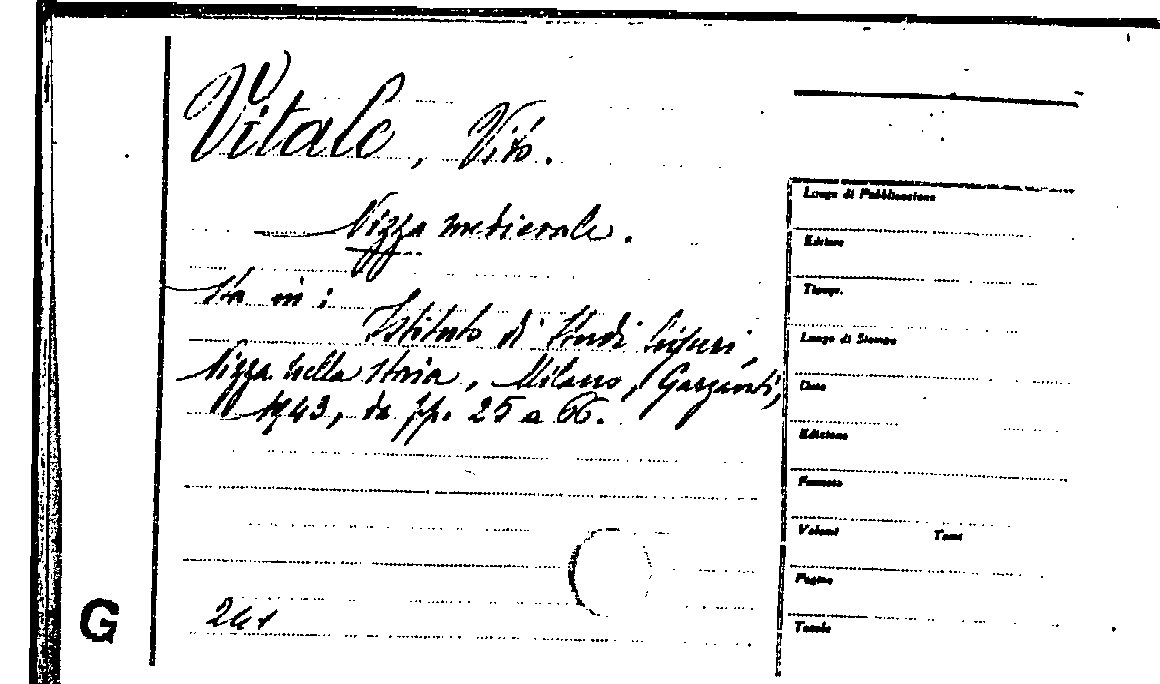 Vitale, Vito.
Nizza medievale.
Sta in:
Istituto di Studi Liguri,
Nizza nella storia, Milano, Garzanti,
1943, da pp. 25 a 66.
241
G
Luogo di Pubblicazione
Editore
Tipogr.
Luogo di Stampa
Data
Edizione
Formato
Volumi Tomi
Pagine
Tavole